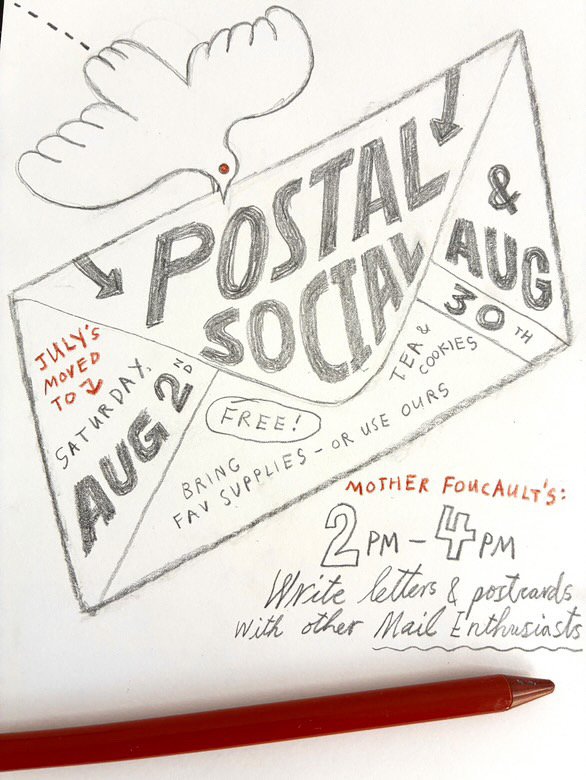 POSTAL
SOCIAL
JULY'S
MOVED
TO
SATURDAY,
AUG 2ND
&
AUG
30TH
TEA &
COOKIES
FREE!
BRING
FAV SUPPLIES - OR USE OURS
MOTHER FOUCAULT'S:
2PM - 4PM
Write letters & postcards
With other Mail Enthusiasts